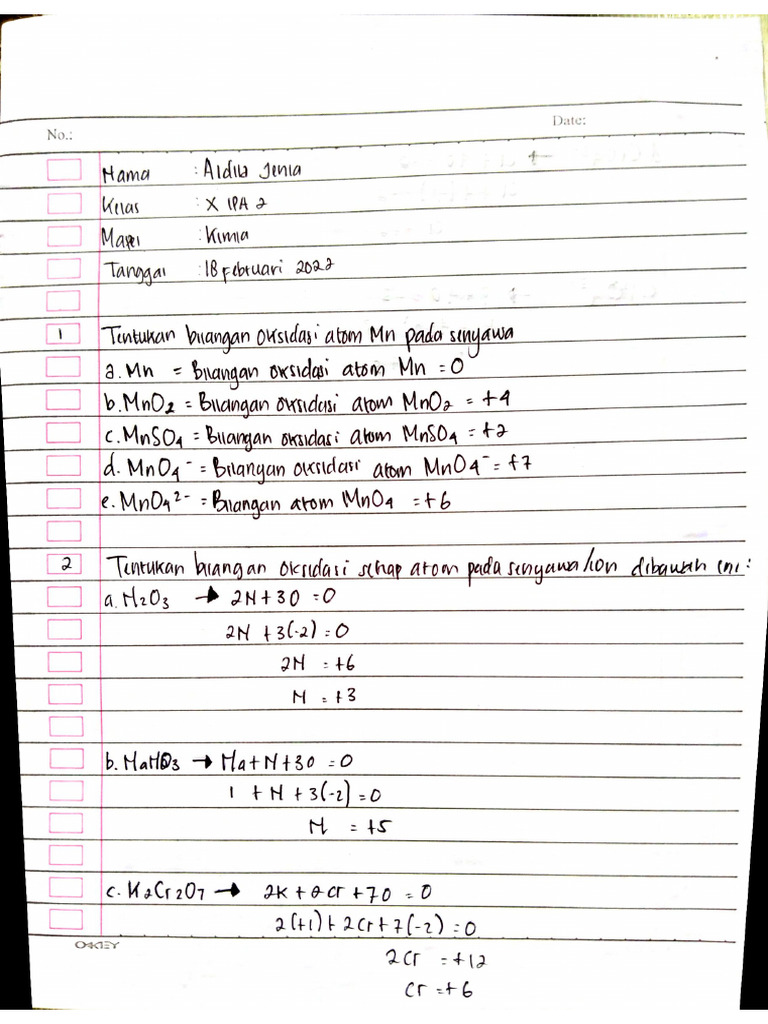 No.:
Date:
Nama : Aldila Jenia
Kelas : X IPA 2
Mapel : Kimia
Tanggal : 18 Februari 2022
1 Tentukan bilangan oksidasi atom Mn pada senyawa
a. Mn = Bilangan oksidasi atom Mn = 0
b. MnO2 = Bilangan oksidasi atom MnO2 = +4
c. MnSO4 = Bilangan oksidasi atom MnSO4 = +2
d. MnO4⁻ = Bilangan oksidasi atom MnO4⁻ = +7
e. MnO4²⁻ = Bilangan atom MnO4 = +6
2 Tentukan bilangan oksidasi setiap atom pada senyawa/ion dibawah ini :
a. N2O3 → 2N + 3O = 0
2N + 3(-2) = 0
2N = +6
N = +3
b. NaNO3 → Na + N + 3O = 0
1 + N + 3(-2) = 0
N = +5
c. K2Cr2O7 → 2K + 2Cr + 7O = 0
2(+1) + 2Cr + 7(-2) = 0
OAKEY
2Cr = +12
Cr = +6